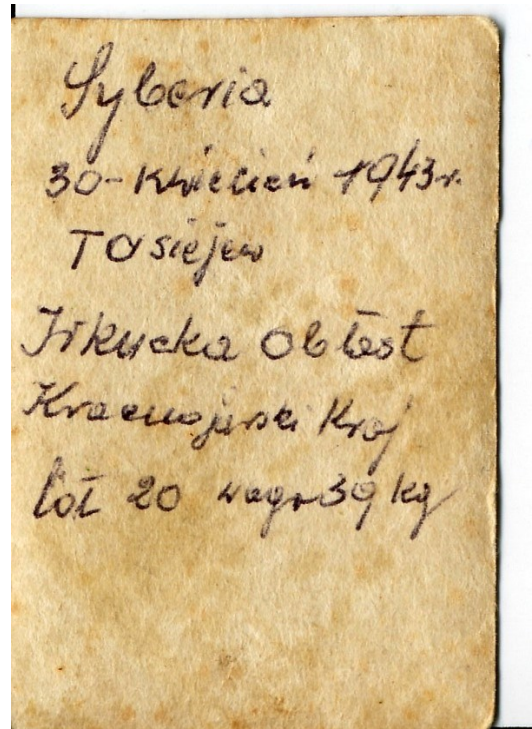 Syberia
30-kwiecień 1943r.
Tasiejew
Irkucka Obłast
Kracnojarski Kraj
lat 20 waga 39 kg